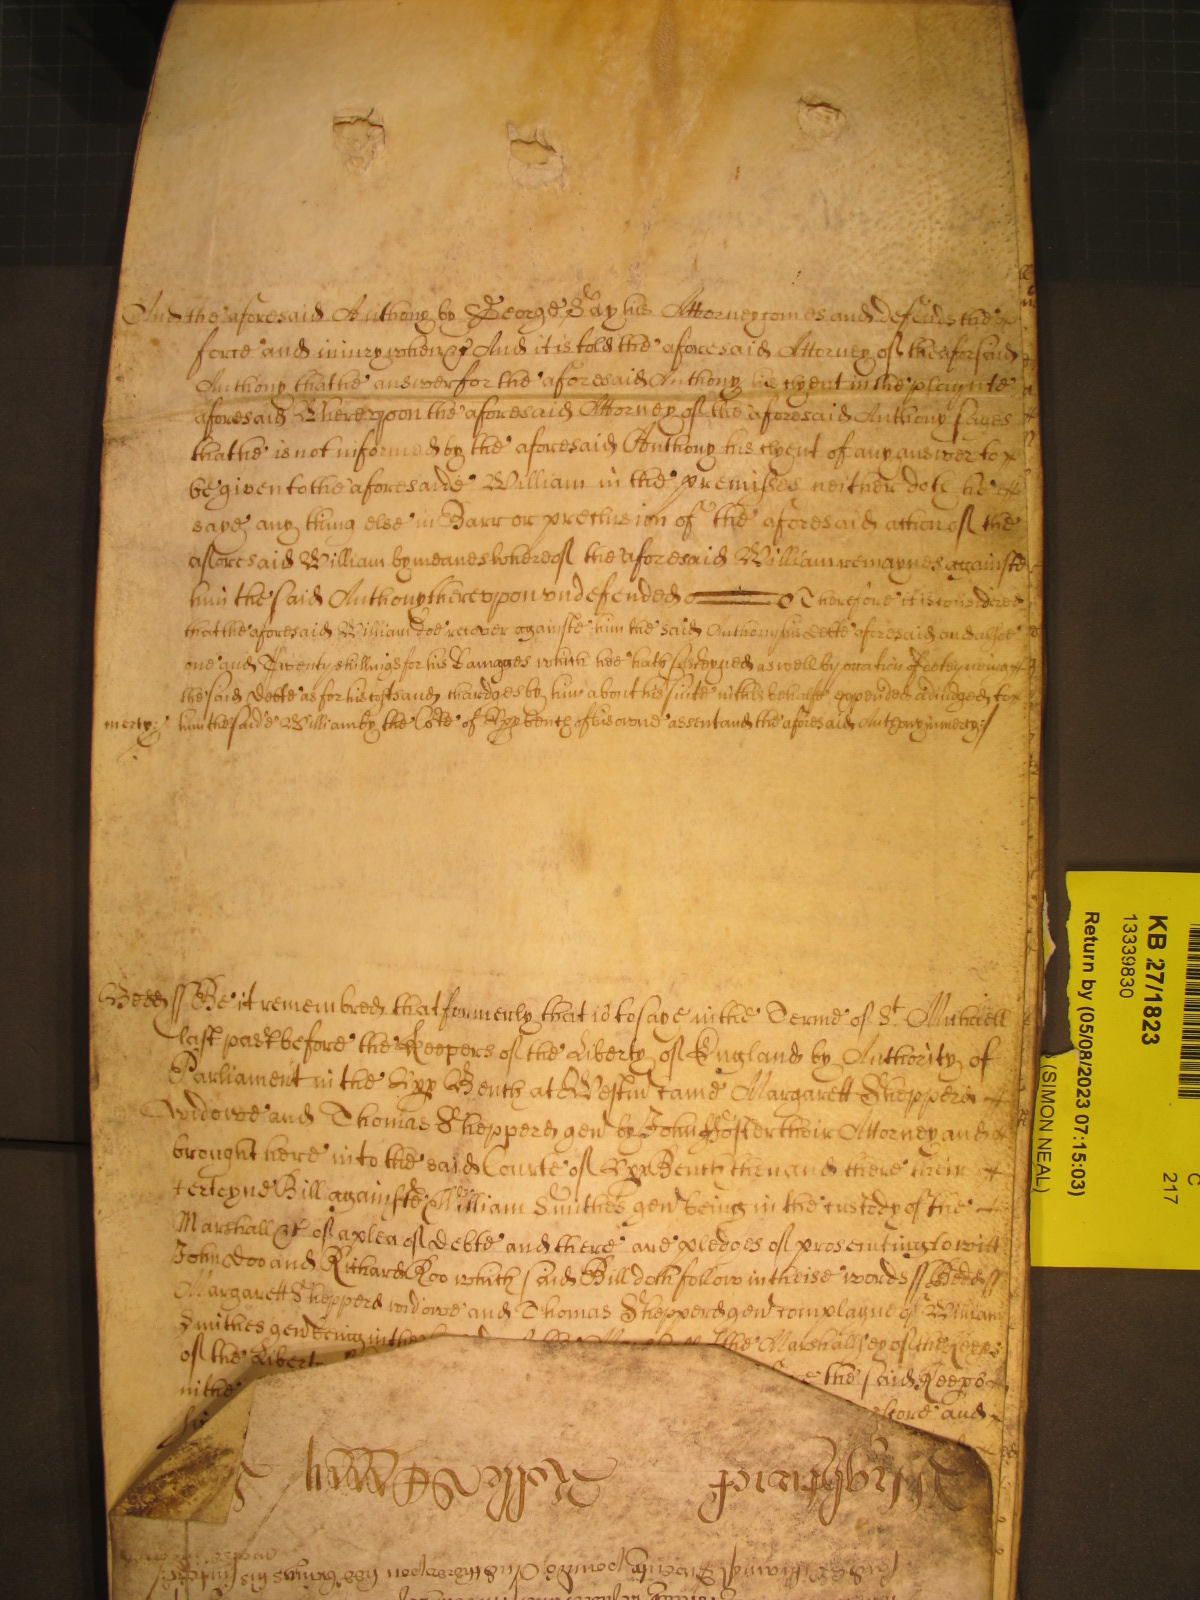 And the aforesaid Anthony by George Day his Attorney comes and defends the
force and iniury when &c And it is told the aforesaid Attorney of the aforsaid
Anthony that he answer for the aforesaid Anthony his clyent in the playnte
aforesaid Whereupon the aforesaid Attorney of the aforesaid Anthony sayes
that he is not informed by the aforesaid Anthony his clyent of any answer to
be given to the aforesaide William in the premisses neither doth he
saye any thing else in Barr or preclusion of the aforesaid action of the
aforesaid William by meanes whereof the aforesaid William remaynes againste
him the said Anthony thereupon undefended Therefore it is considered
that the aforesaid William doe recover againste him the said Anthony his debte aforesaid and alsoe
one and Twenty shillings for his Damages which hee hath susteyned as well by occation of
the said debte as for his costs and chardges by him about his suite in this behalfe expended adiudged to
mercy him the saide William by the Cote of Upp bench of his owne assent and the aforesaid Anthony in mercy
Bedd ss Be it remembred that formerly that is to saye in the Terme of St Michaell
last past before the Keepers of the Liberty of England by Authority of
Parliament in the Upp Bench at Westm came Margarett Shepperd
widowe and Thomas Shepperd gen by John Foster their Attorney and
brought here into the said Courte of Upp Bench then and there their
certeyne Bill againste William Smithes gen being in the custody of the
Marshall &c of a plea of debte and there are pledges of prosecuting to witt
John Doo and Richard Roo which said Bill doth follow in theise words ss Bedd ss
Margarett Shepperd widowe and Thomas Shepperd gen complayne of William
Smithes gen being in the the Marshallsey of the Keeps
of the Libert
in the the said Keeps
and
KB 27/1823
13339830
Return by (05/08/2023 07:15:03)
(SIMON NEAL)
C
217